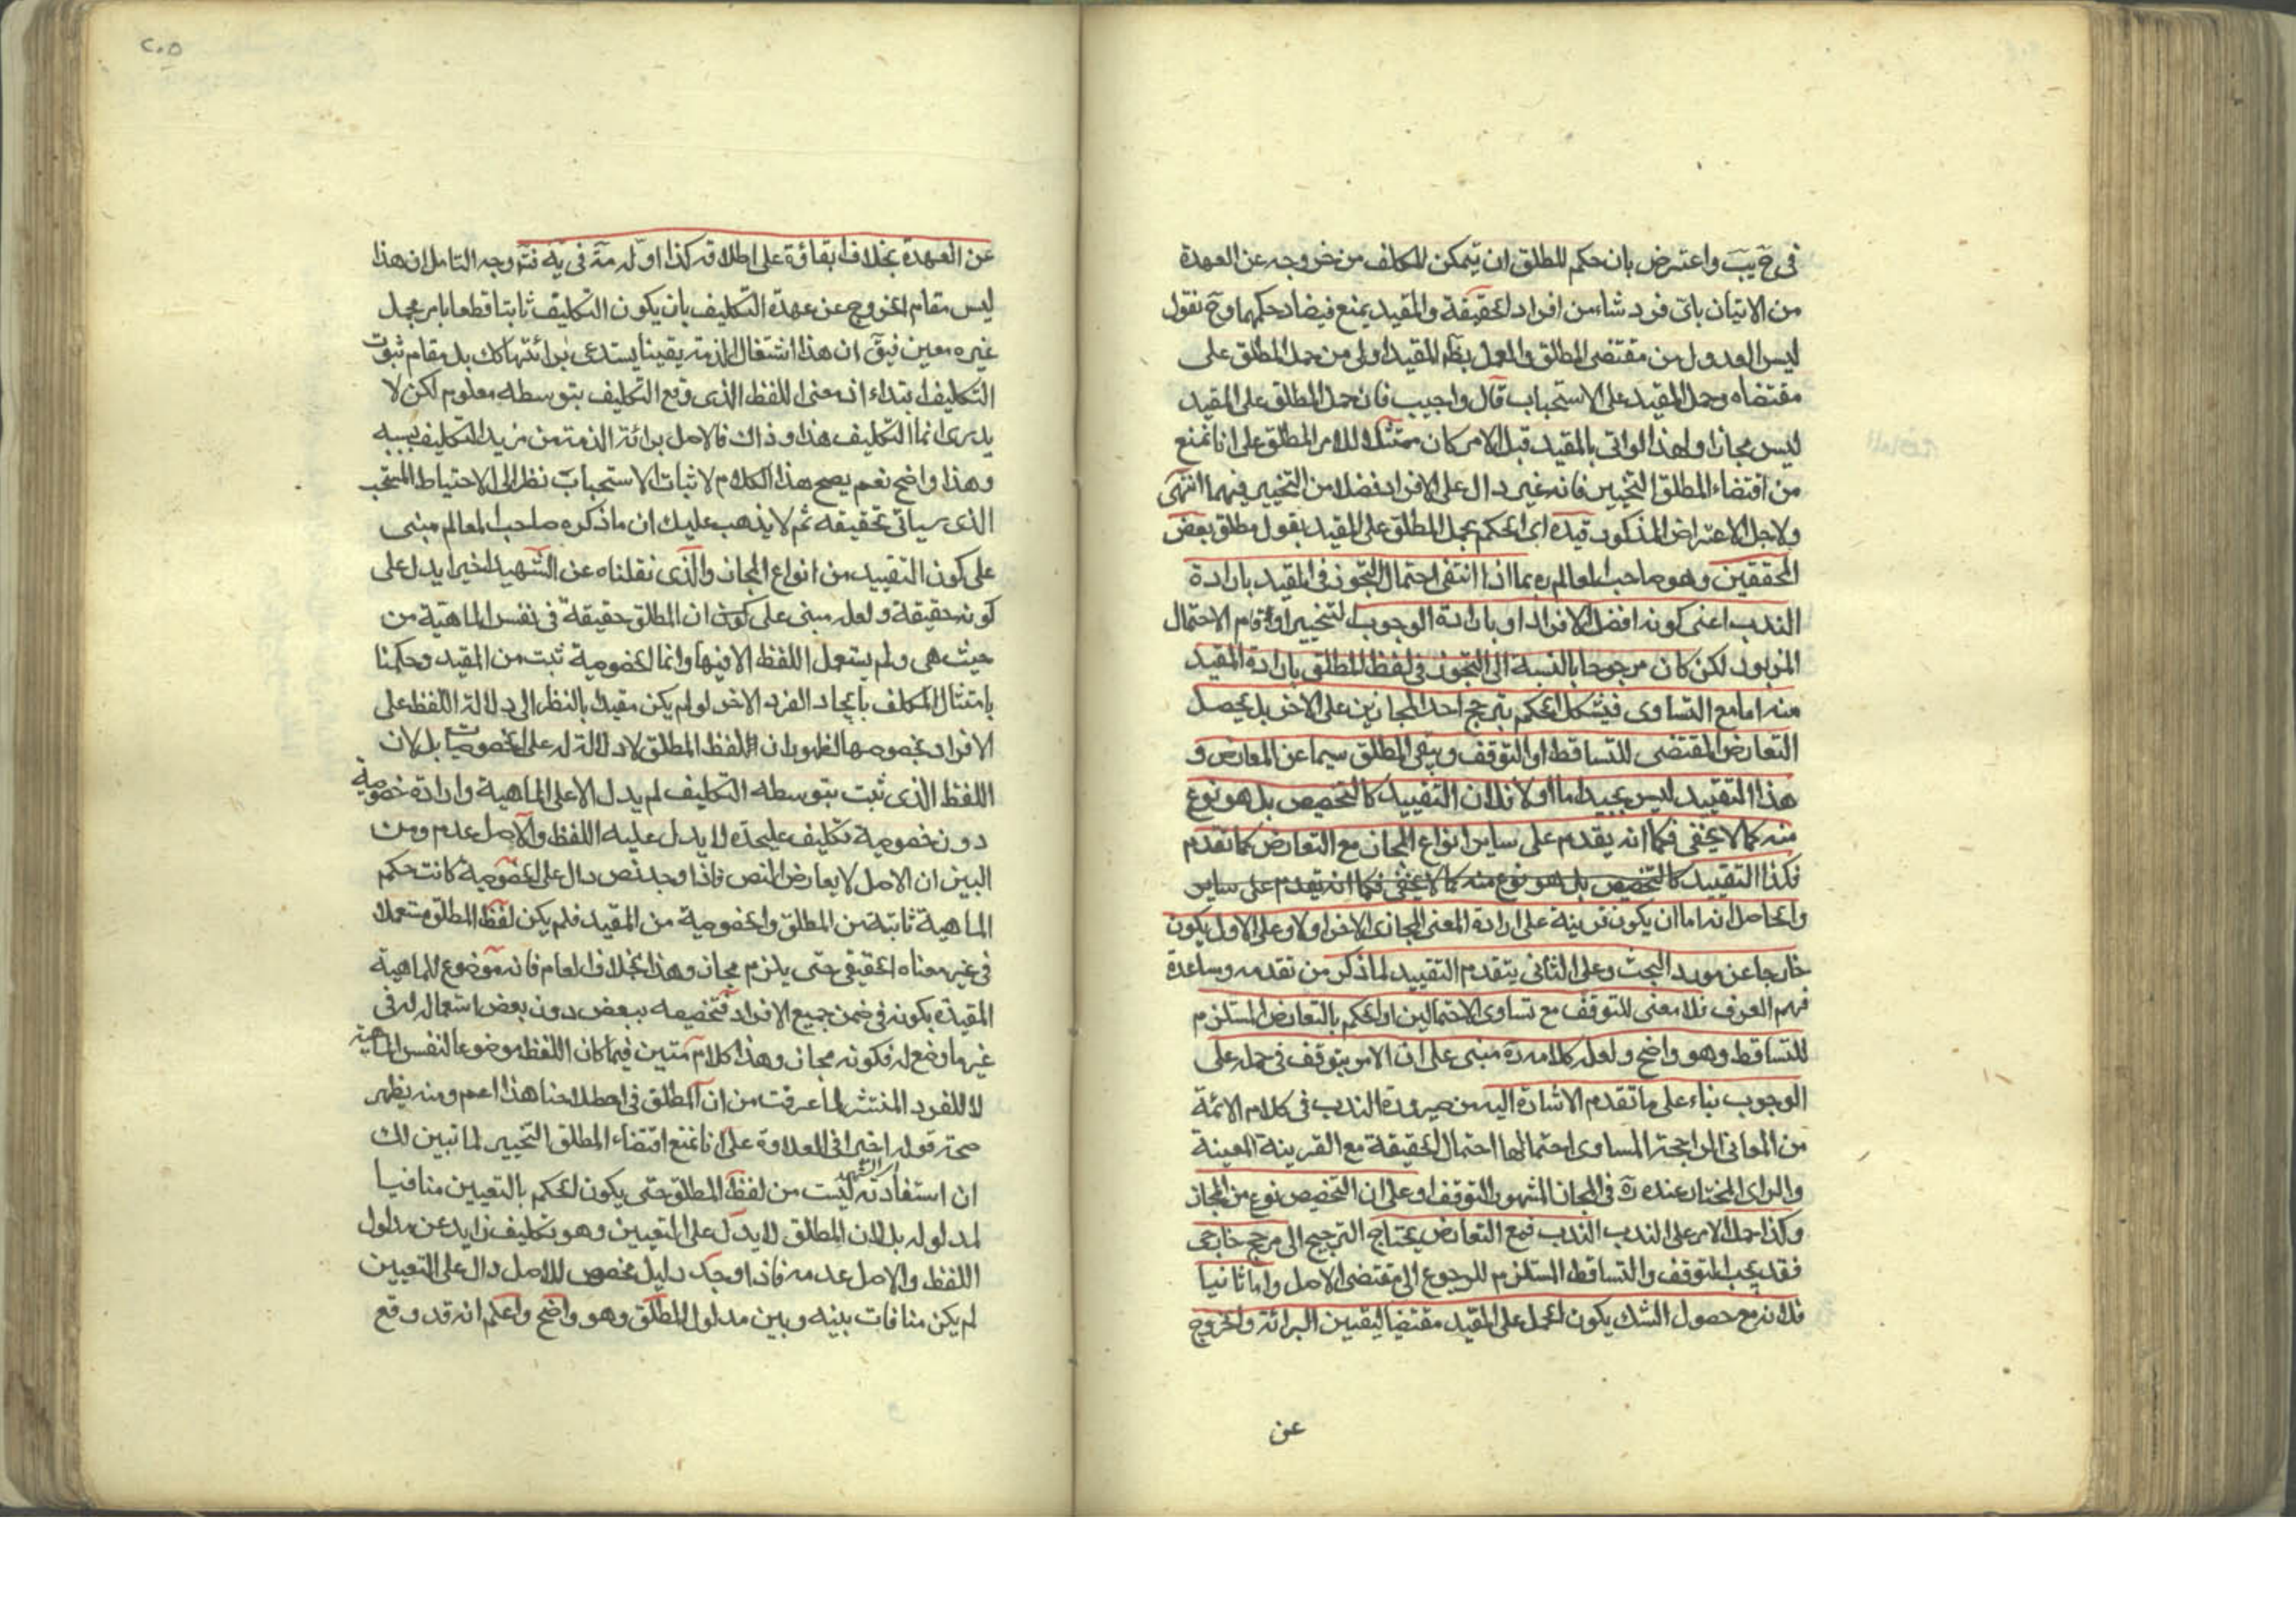 في ح يب واعترض بان حكم المطلق ان يتمكن المكلف من خروجه عن العهدة
من الاتيان باى فرد شاء من افراد الحقيقة والمقيد يمنع فيضاد حكمهما وح نقول
ليس العدول من مقتضى المطلق والعمل بظ المقيد اولى من حمل المطلق على
مقتضاه وحمل المقيد على الاستحباب قال واجيب فان حمل المطلق على المقيد
ليس مجازا ولهذا لو اتى بالمقيد قبل الامر كان ممتثلا للامر المطلق على انا نمنع
من اقتضاء المطلق التخيير فانه غير دال على الافراد فضلا من التخيير فيهما انتهى
ولاجل الاعتراض المذكور قيده اى الحكم بحمل المطلق على المقيد بقول مطلق بعض
المحققين وهو صاحب المعالم ره بما اذا انتفى احتمال التجوز فى المقيد بارادة
الندب اعنى كونه افضل الافراد او بارادة الوجوب التخييرى او قام الاحتمال
المزبور لكن كان مرجوحا بالنسبة الى التجوز فى لفظ المطلق بارادة المقيد
منه اما مع التساوى فيشكل الحكم بترجيح احد المجازين على الاخر بل يحصل
التعارض المقتضى للتساقط او التوقف ويبقى المطلق سيما عن المعارض و
هذا التقييد ليس بجيد اما اولا فلان التقييد كالتخصيص بل هو نوع
منه كما لا يخفى فكما انه يقدم على ساير انواع المجاز مع التعارض كما تقدم
فكذا التقييد كالتخصيص بل هو نوع منه كما لا يخفى فكما انه يقدم على ساير
والحاصل انه اما ان يكون قرينة على ارادة المعنى المجازى الاخر اولا وعلى الاول يكون
خارجا عن مورد البحث وعلى الثانى يتقدم التقييد لما ذكر من تقدمه وساعدة
فهم العرف فلا معنى للتوقف مع تساوى الاحتمالين او الحكم بالتعارض المستلزم
للتساقط وهو واضح ولعل كلامه ره مبنى على ان الامر يتوقف فى حمله على
الوجوب بناء على ما تقدم الاشارة اليه من صيرورة الندب فى كلام الائمة
من المعانى الراجحة المساوى احتمالها احتمال الحقيقة مع القرينة المعينة
والراى المختار عنده ره فى المجاز المشهور التوقف او على ان التخصيص نوع من المجاز
وكذا حمل الامر على الندب الندب فمع التعارض يحتاج الترجيح الى مرجح خارجى
فقد يجب التوقف والتساقط المستلزم للرجوع الى مقتضى الاصل واما ثانيا
فلانه مع حصول الشك يكون الحمل على المقيد مقتضيا ليقين البرائة والخروج
عن
٢٠٥
عن العهدة بخلاف ابقائه على اطلاقه كذا اوله مة فى يه فتم وجه التامل ان هذا
ليس مقام الخروج عن عهدة التكليف بان يكون التكليف ثابتا قطعا بامر مجمل
غيره معين فيق ان هذا اشتغال الذمة يقينا يستدعى برائتها كك بل مقام ثبوت
التكليف ابتداء اذ معنى اللفظ الذى وقع التكليف بتوسطه معلوم لكن لا
يدرى انما التكليف هذا وذاك فالاصل برائة الذمة من مزيد التكليف بسببه
وهذا واضح نعم يصح هذا الكلام لاثبات الاستحباب نظرا الى الاحتياط المستحب
الذى سياتى تحقيقه ثم لا يذهب عليك ان ما ذكره صاحب المعالم مبنى
على كون التقييد من انواع المجاز والذى نقلناه عن الشهيد اخيرا يدل على
كونه حقيقة ولعله مبنى على كون ان المطلق حقيقة فى نفس الماهية من
حيث هى ولم يستعمل اللفظ الا فيها وانما الخصوصية ثبت من المقيد وحكمنا
بامتثال المكلف بايجاد الفرد الاخر لو لم يكن مقيد بالنظر الى دلالة اللفظ على
الافراد بخصوصها لظهور ان اللفظ المطلق لا دلالة له على الخصوصيات بل لان
اللفظ الذى ثبت بتوسطه التكليف لم يدل الا على الماهية وارادة خصوصية
دون خصوصية تكليف عليحدة لا يدل عليه اللفظ والاصل عدمه ومن
البين ان الاصل لا يعارض النص فاذا وجد نص دال على الخصوصية كانت حكم
الماهية ثابتة من المطلق والخصوصية من المقيد فلم يكن لفظ المطلق مستعملا
فى غير معناه الحقيقى حتى يلزم مجاز وهذا بخلاف العام فانه موضوع للماهية
المقيدة بكونه فى ضمن جميع الافراد فتخصيصه ببعض دون بعض استعمال له فى
غير ما وضع له فكونه مجاز وهذا كلام متين فيما كان اللفظ موضوعا لنفس الماهية
لا للفرد المنتشر لما عرفت من ان المطلق فى اصطلاحنا هذا اعم ومنه يظهر
صحة قوله اخيرا فى العلاوة على انا نمنع اقتضاء المطلق التخيير لما تبين لك
ان استفادته ليست من لفظ المطلق حتى يكون الحكم بالتعيين منافيا
لمدلوله بل لان المطلق لا يدل على التعيين وهو تكليف زايد عن مدلول
اللفظ والاصل عدمه فاذا وجد دليل مخصص للاصل دال على التعيين
لم يكن منافات بينه وبين مدلول المطلق وهو واضح واعلم انه قد وقع